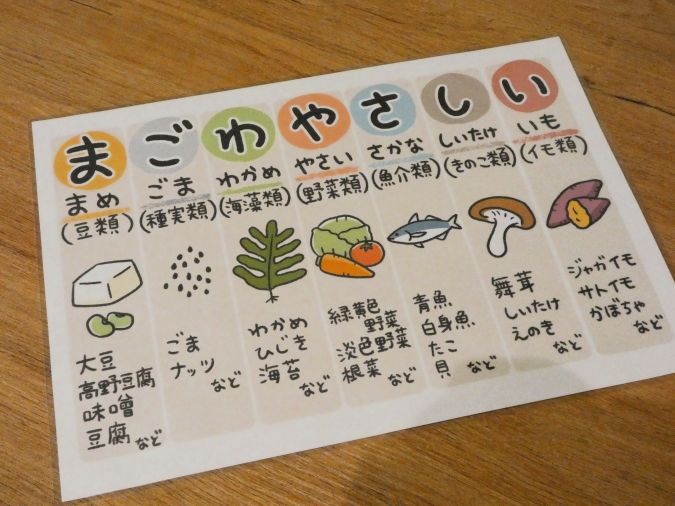 まごわやさしい
まめ
(豆類)
大豆
高野豆腐
味噌
豆腐 など
ごま
(種実類)
ごま
ナッツ
など
わかめ
(海藻類)
わかめ
ひじき
海苔
など
やさい
(野菜類)
緑黄色
野菜
淡色野菜
根菜 など
さかな
(魚介類)
青魚
白身魚
たこ
貝 など
しいたけ
(きのこ類)
舞茸
しいたけ
えのき
など
いも
(イモ類)
ジャガイモ
サトイモ
かぼちゃ
など